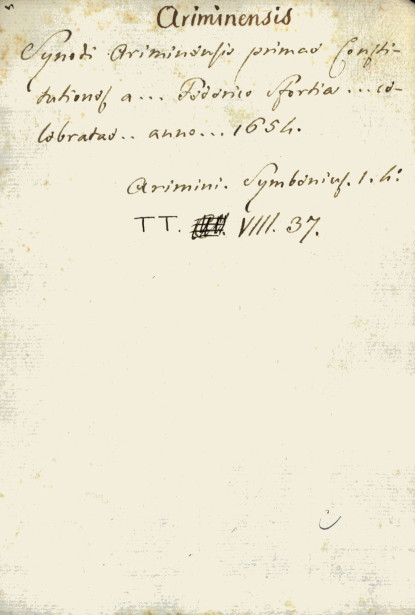 Ariminensis
Synodi Ariminensis primae Consti-
tutiones a... Foderico Sfortia... ce-
lebratae.. anno... 1654.
Arimini. Symbenius. 1. 4°
TT. VIII. 37.